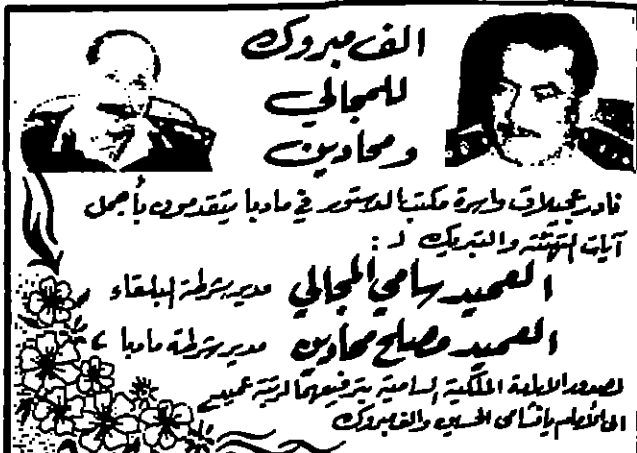 الف مبروك
للمجالي
ومحادين
نادر عجيلات واسرة مكتب الدستور في مادبا يتقدمون بأجمل
آيات التهنئة والتبريك لـ :
العميد سامي المجالي مدير شرطة البلقاء
العميد مصلح محادين مدير شرطة مادبا
لصدور الارادة الملكية السامية بترفيعهما لرتبة عميد
الى الأمام يا نشامى الحسين والف مبروك